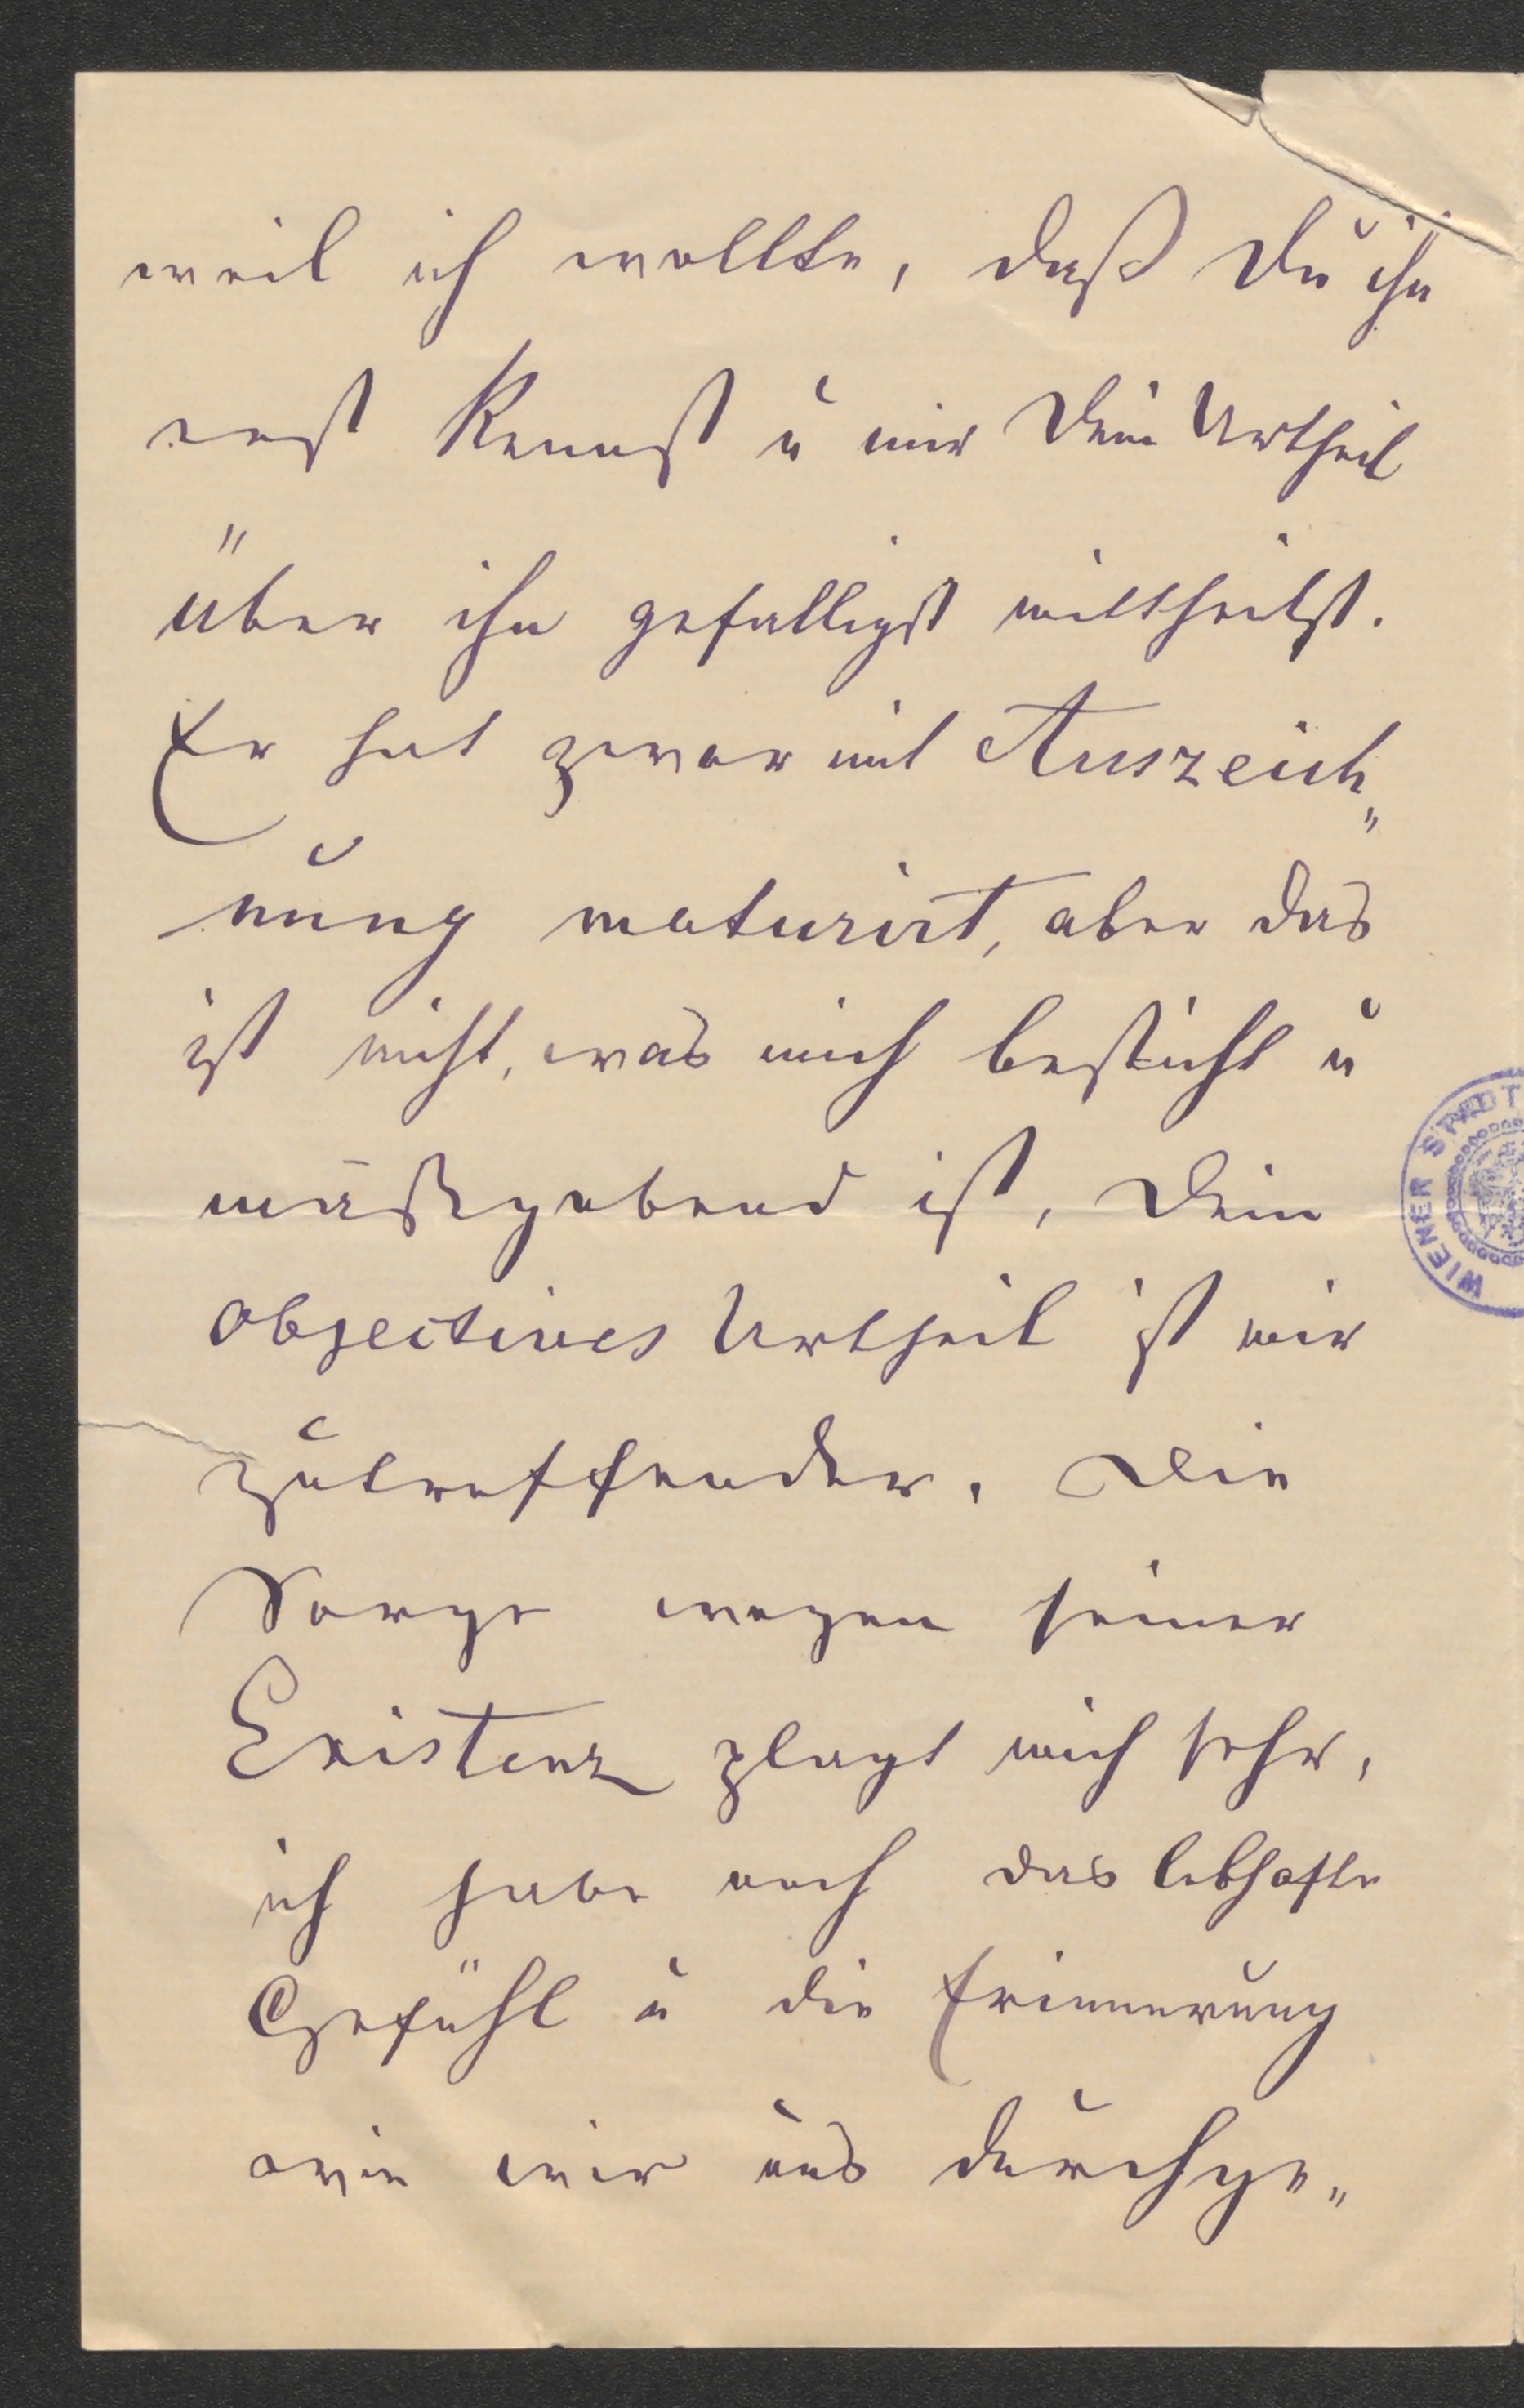 weil ich wollte, daß Du ihn
erst kennst u mir Dein Urtheil
über ihn gefälligst mittheilst.
Er hat zwar mit Auszeich„
nung maturirt, aber das
ist nicht, was mich besticht u
maßgebend ist, Dein
objectives Urtheil ist mir
zutreffender. Die
Sorge wegen seiner
Existenz plagt mich sehr,
ich habe noch das lebhafte
Gefühl u die Erinnerung
wie wir uns durchge„
WIENER STADT